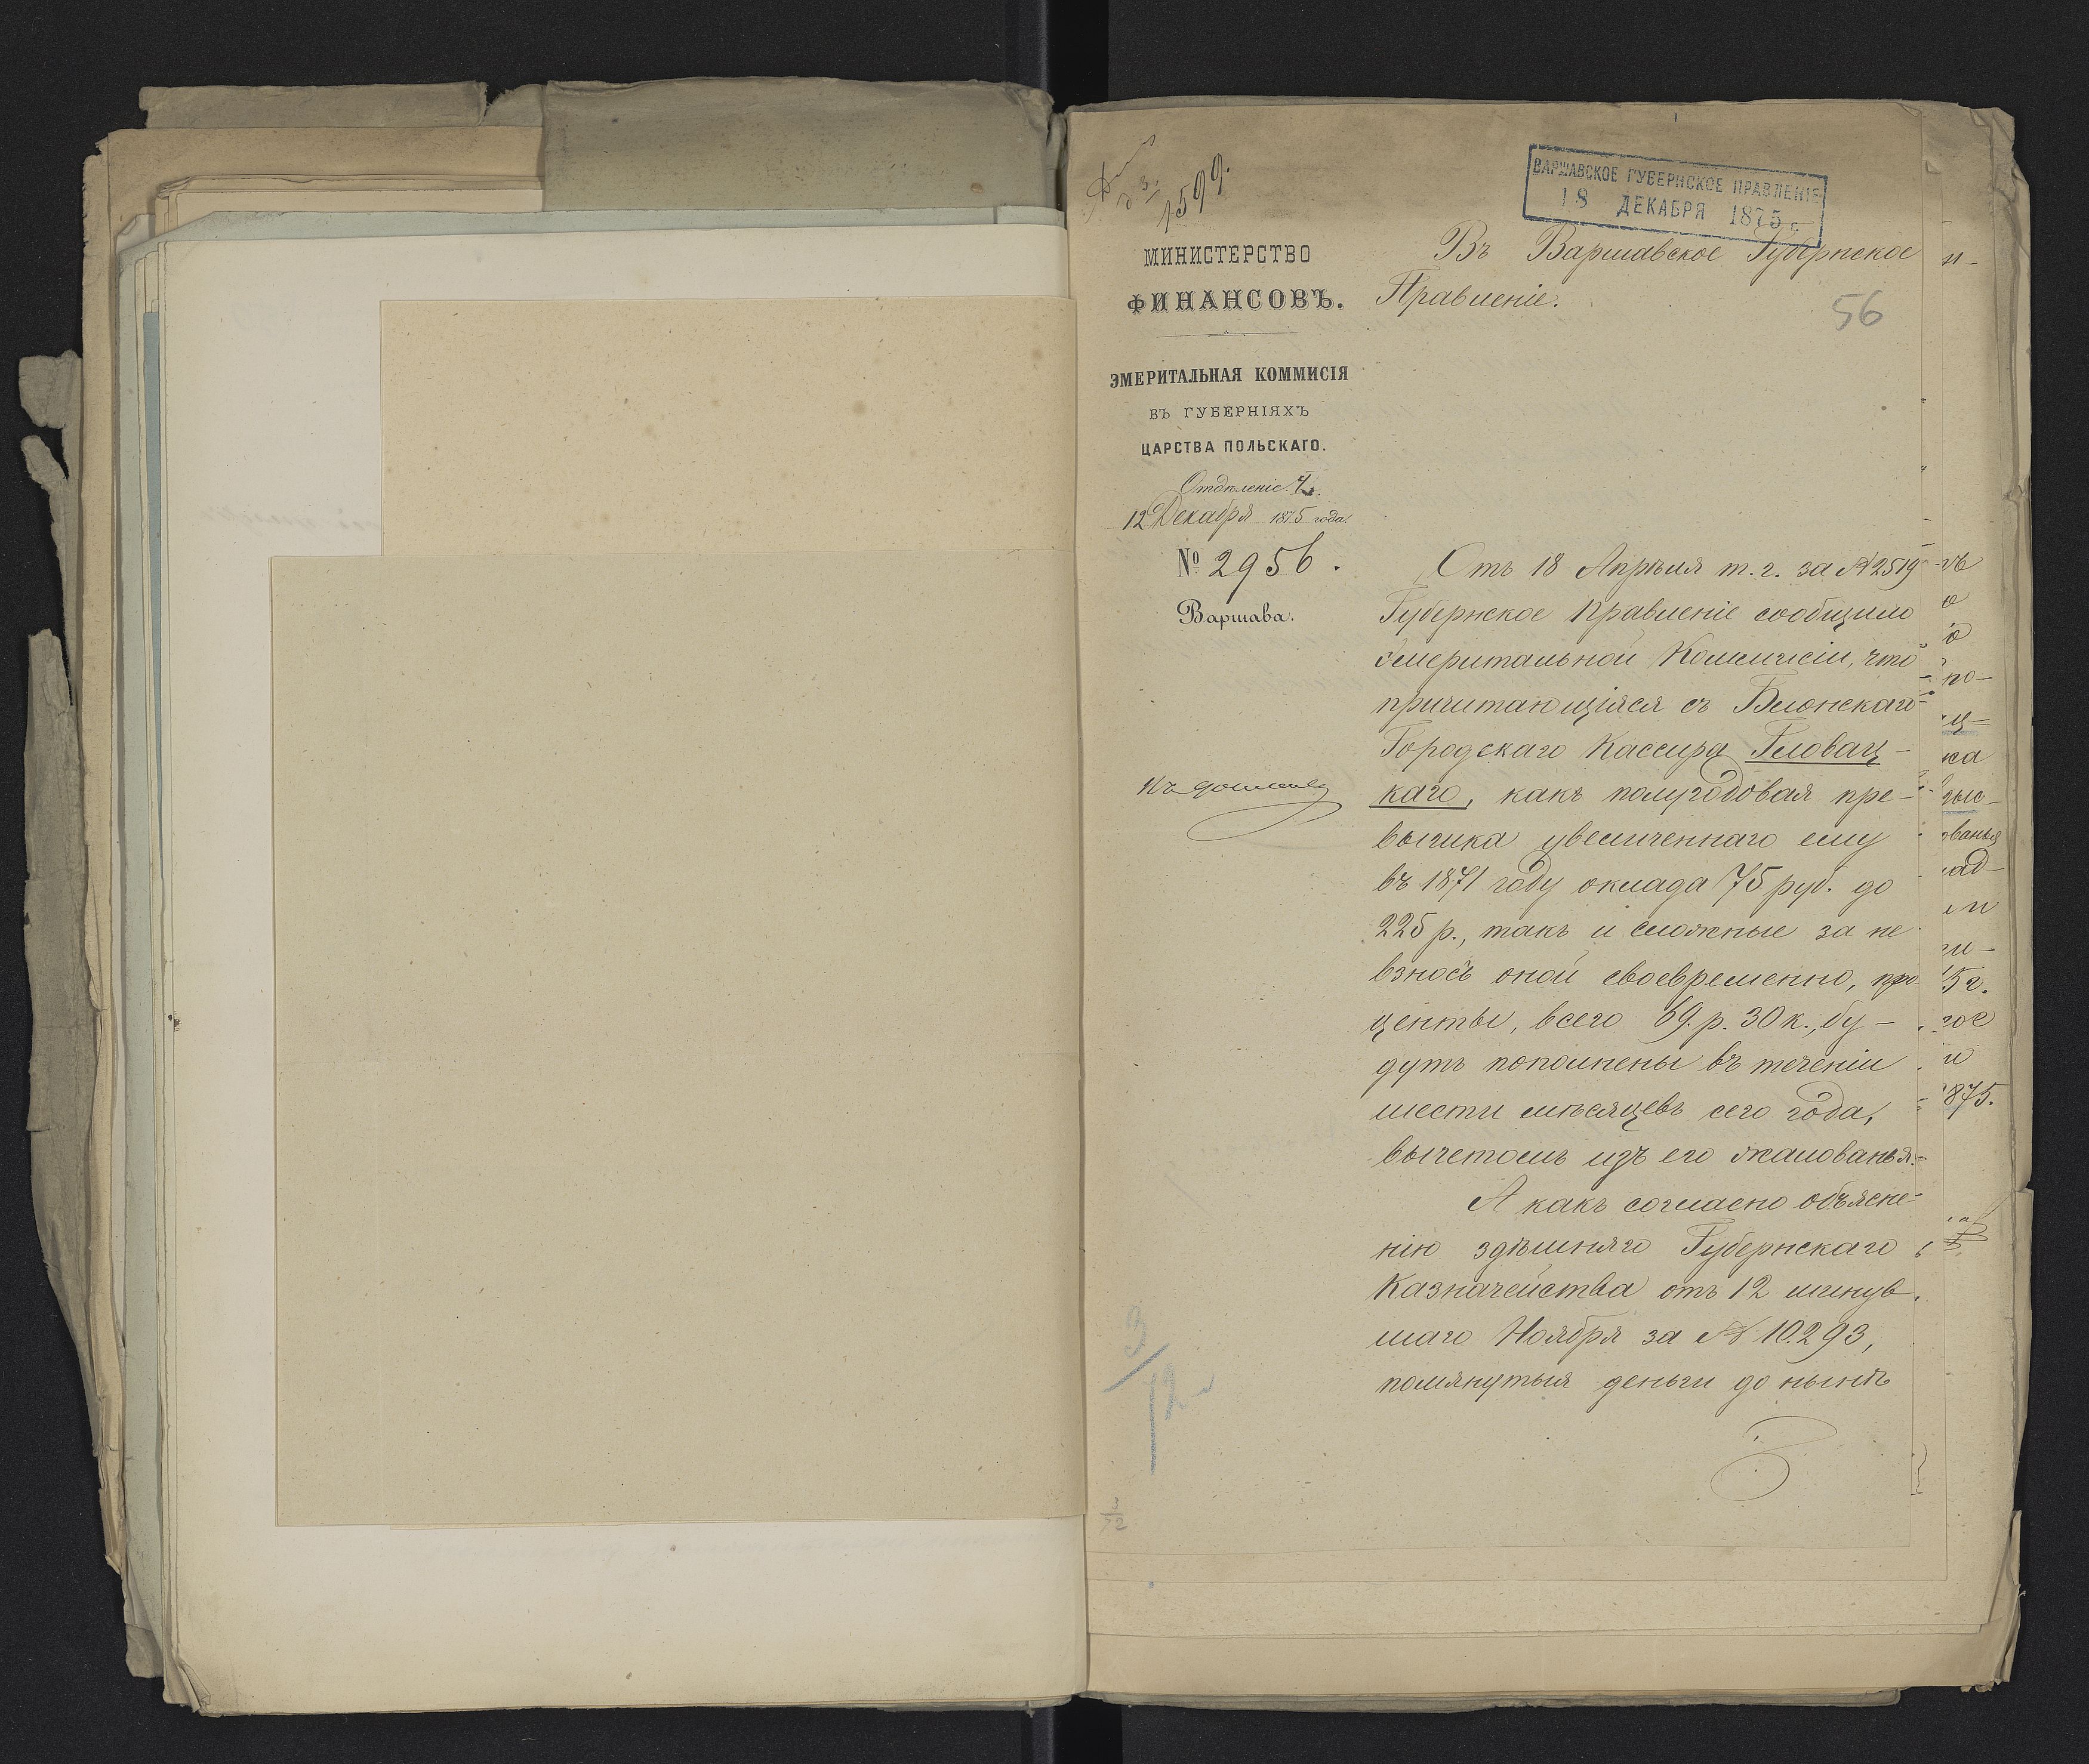 1599.
ВАРШАВСКОЕ ГУБЕРНСКОЕ ПРАВЛЕНІЕ
18 ДЕКАБРЯ 1875 г
МИНИСТЕРСТВО
ФИНАНСОВЪ.
ЭМЕРИТАЛЬНАЯ КОММИСІЯ
ВЪ ГУБЕРНІЯХЪ
ЦАРСТВА ПОЛЬСКАГО.
Отдѣленіе
12 Декабря 1875 года.
№ 2956.
Варшава.
Въ Варшавское Губернское
Правленіе.
56
Отъ 18 Апрѣля т. г. за № 2519
Губернское Правленіе сообщило
Эмеритальной Коммисіи, что
причитающіяся съ Блонскаго
Городскаго Кассира Гловац-
каго, какъ полугодовая пре-
вычка увеличеннаго ему
въ 1871 году оклада 75 руб. до
225 р., такъ и сложные за не
взносъ оной своевременно, про
центы, всего 69. р. 30 к., бу-
дутъ пополнены въ теченіи
шести мѣсяцевъ сего года,
вычетомъ изъ его жалованья.
А какъ согласно объясне-
нію здѣшняго Губернскаго
Казначейства отъ 12 минув
шаго Ноября за № 10.293,
помянутыя деньги до нынѣ
3/12
3/12
875.